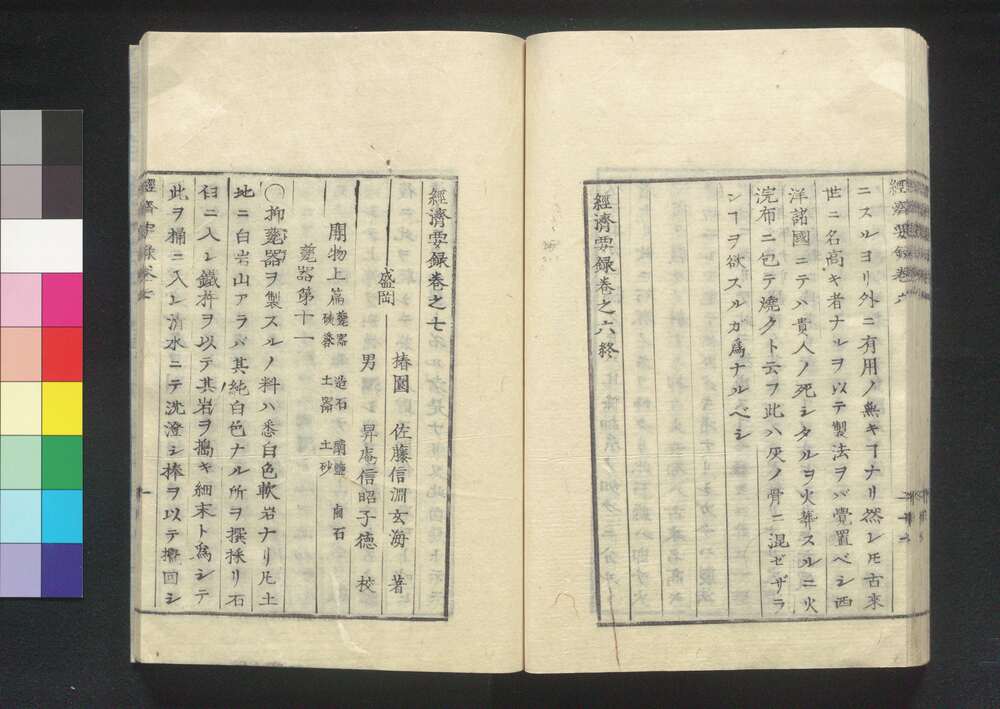 經濟要録卷六
ニスルヨリ外ニ有用ノ無キヿナリ然レモ古來
世ニ名高キ者ナルヲ以テ製法ヲバ覺置ベシ西
洋諸國ニテハ貴人ノ死シタルヲ火葬スルニ火
浣布ニ包テ燒クト云フ此ハ灰ノ骨ニ混ゼザラ
ンヿヲ欲スルガ為ナルベシ
經濟要録卷之六終
經濟要録卷之七
盛岡 椿園 佐藤信淵玄海 著
男 昇庵信昭子德 校
開物上篇
甆器 造石 鹵石
土器 土砂
甆器第十一
〇抑甆器ヲ製スルノ料ハ悉白色軟岩ナリ凡土
地ニ白岩山アラバ其純白色ナル所ヲ撰採リ石
臼ニ入レ鐵杵ヲ以テ其岩ヲ搗キ細末ト為シテ
此ヲ桶ニ入レ清水ニテ洗澄シ捧ヲ以テ攪回シ
經濟要録卷七
一